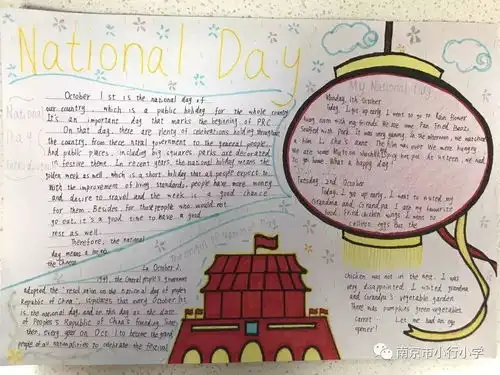 National Day
October 1st is the national day of
our country, which is a public holiday for the whole country
It's an important day that marks the beginning of PRC
On that day, there are plenty of celebrations holding throughout
the country, from these naval government to the general people.
And public places, including big squares parks are decorated
in festive theme. In recent years, the national holiday means the
golden week as well, which is a short holiday that all people expect to
With the improvement of living standards, people have more money
and desire to travel and the week is a good chance
for them. Besides, for those people who would not
go out, it's a good time to have a good
rest as well.
Therefore, the national
day means a lot to
the Chinese
The origin of National Day
On October 2,
1949, the Central People's government
adopted the "resolution on the national day of people's
Republic of China", stipulates that every October 1st
is the national day, and on this day as the date
of People's Republic of China's founding. Since
then, every year on Oct. 1 to become the grand
people of all nationalities to celebrate the festival
My National Day
Monday, 1st October
Today, I got up early. I went to go to Rain flower
with my friend. We ate some Pan Fried Buns
Stuffed with Pork. It was very yummy. In the afternoon, we watched
a film. L. Sha's anne. The film was over. We were hungry
We ate some Majia an. At six teen, we had
to go home. What a happy day!
Tuesday, 2nd October
Today, I got up early, I went to visited my
Grandma and Grandpa. I ate my favourite
food, fried chicken wings. I went to
collect eggs. But the
chicken was not in the nest. I was
very disappointed. I visited grandma
and Grandpa's vegetable garden.
There was pumpkins green vegetables
carrot... Let me had an eye
opener!
南京市小行小学